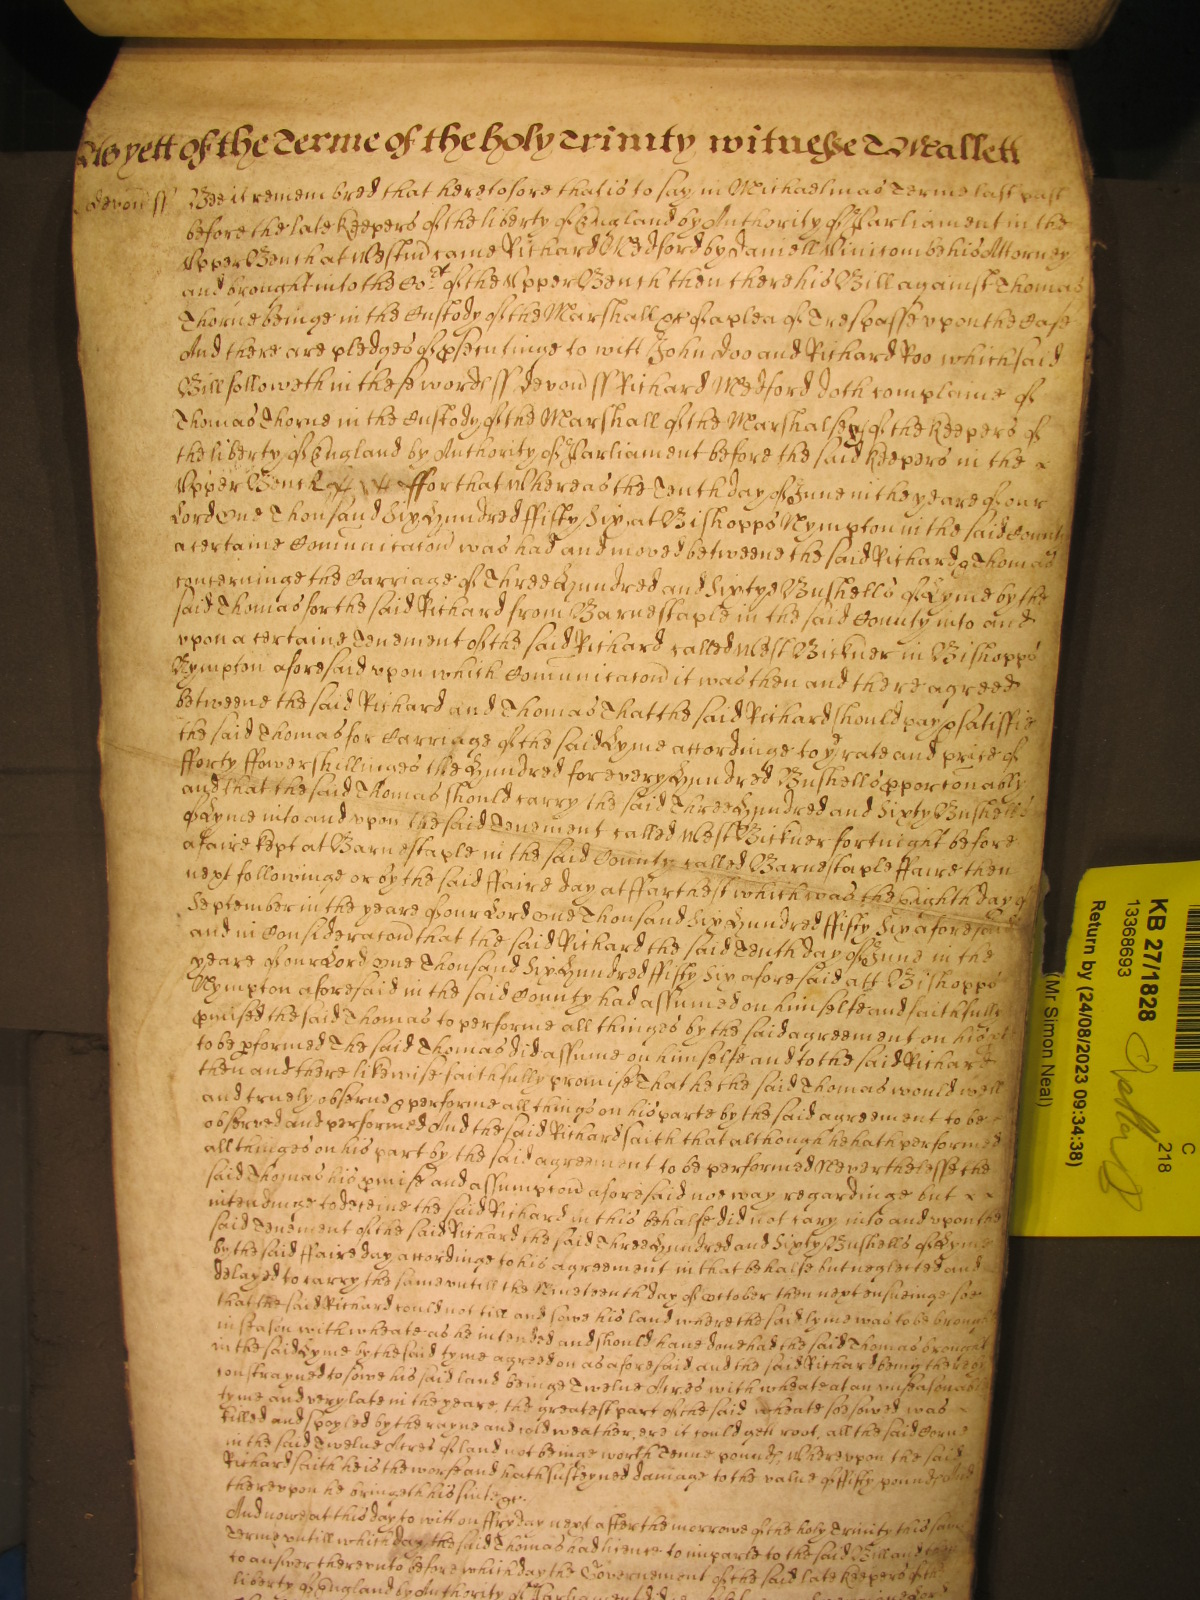 As yett of the Terme of the holy Trinity witnesse T Mallett
Devon ss Bee it remembred that heretofore that is to say in Michaelmas Terme last past
before the late Keepers of the liberty of England by Authority of Parliament in the
Upper Bench at Westm̄ came Richard Medford by Daniell his Attorney
and brought into the Cort of the Upper Bench then there his Bill against Thomas
Thorne beinge in the Custody of the Marshall &c of a plea of Trespasse upon the Case
And there are pledges of p̱secutinge to witt John Doo and Richard Roo which said
Bill followeth in these wordes ss Devon ss Richard Medford doth complaine of
Thomas Thorne in the Custody of the Marshall of the Marshalsey of the Keepers of
the liberty of England by Authority of Parliament before the said Keepers in the
Upper Bench ffor that Whereas the Tenth day of June in the yeare of our
Lord One Thousand Six Hundred ffifty Six at Bishopps Nympton in the said County
a certaine Comunicacōn was had and moved betweene the said Richard & Thomas
concerninge the Carriage of Three Hundred and Sixtye Bushells of Lyme by the
said Thomas for the said Richard from Barnestaple in the said County into and
upon a certaine Tenement of the said Richard called West Bickner in Bishopps
Nympton aforesaid upon which Comunicacōn it was then and there agreed
betweene the said Richard and Thomas That the said Richard should pay & satisfie
the said Thomas for Carriage of the said Lyme accordinge to ye rate and price of
fforty ffower shillinges the Hundred for every Hundred Bushells p̱porconably
and that the said Thomas should carry the said Three Hundred and Sixty Bushells
of Lyme into and upon the said Tenement called West Bickner fortnight before
a faire kept at Barnestaple in the said County called Barnestaple ffaire then
next followinge or by the said ffaire day at ffarthest which was the eighth day of
September in the yeare of our Lord One Thousand Six Hundred ffifty Six aforesaid
and in Consideracōn that the said Richard the said Tenth day of June in the
yeare of our Lord One Thousand Six Hundred ffifty Six aforesaid att Bishopps
Nympton aforesaid in the said County had assumed on himselfe and faithfully
p̱mised the said Thomas to performe all thinges by the said agreement on his p̱t
to be p̱formed The said Thomas did assume on himselfe and to the said Richard
then and there likewise faithfully promise That he the said Thomas would well
and truely observe & performe all things on his parte by the said agreement to be
observed and performed And the said Richard saith that although he hath performed
all thinges on his part by the said agreement to be performed Neverthelesse the
said Thomas his p̱mise and assumptcōn aforesaid noe way regardinge but
intendinge to deceive the said Richard in this behalfe did not cary into and upon the
said Tenement of the said Richard the said Three Hundred and Sixty Bushells of Lyme
by the said ffaire day accordinge to his agreement in that behalfe but neglected and
delayed to carry the same untill the Nineteenth day of October then next ensueinge soe
that the said Richard could not till and sowe his land where the said lyme was to be brought
in season with wheate as he intended and should have done had the said Thomas brought
in the said Lyme by the said tyme agreed on as aforesaid and the said Richard being thereby
constrayned to sowe his said land beinge Twelve Acres with wheate at an unseasonable
tyme and very late in the yeare the greatest part of the said wheate soe sowed was
killed and spoyled by the rayne and cold weather ere it could gett root, all the said Corne
in the said Twelve Acres of land not beinge worth Tenne pounds, Whereupon the said
Richard saith he is the worse and hath susteyned damage to the value of ffifty pounds And
thereupon he bringeth his suite &c
And nowe at this day to witt on ffryday next after the morrowe of the holy Trinity this same
Terme untill which day the said Thomas had licence to imparle to the said Bill and then
to answer thereunto before which day the Governement of the said late Keepers of the
liberty of England by Authority of Parliament
KB 27/1828
13368693
Return by (24/08/2023 09:34:38)
(Mr Simon Neal)
C
218